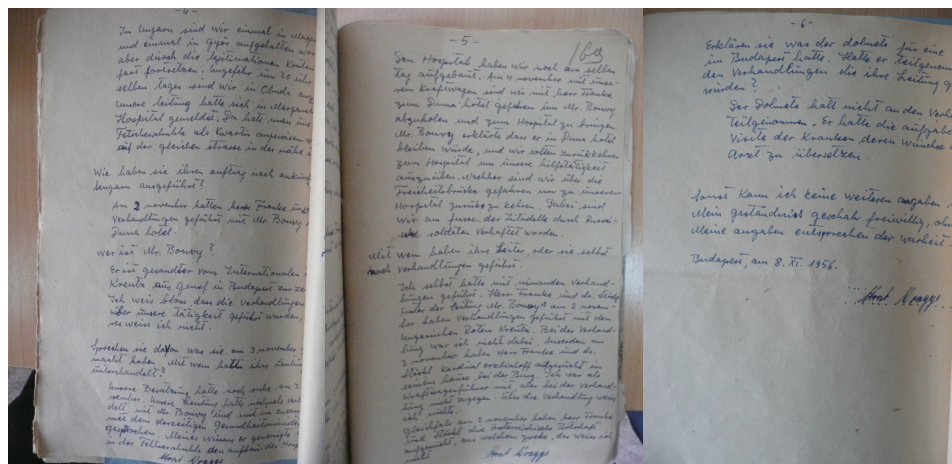 -4-
In Ungarn sind wir einmal in
und einmal in Györ aufgehalten
aber durch die legitimationen
fart fortsetzen. ungefehr um 20 uhr
selben tages sind wir in Obuda
Unsere leitung hatte sich in
Hospital gemeldet. Da hat man uns
als Kwartir angewiesen
auf der gleichen strasse in der nähe
Wie haben sie ihren auftrag nach
Ungarn ausgeführt?
Am 2 november hatten herr Franke, und
Verhandlungen geführt mit Mr. Bouvy
Duna hotel.
wer ist Mr. Bouvy?
Er ist gesandter vom Internationalen
Kreutz aus Genef in Budapest zur
Ich weis bloss dass die verhandlungen
über unsere tätigkeit geführt wurden,
res weiss ich nicht.
Sprechen sie davon was sie am 3 november
macht haben. Mit wem hatte ihre Leitung
unterhandelt?
Unsere Besatzung hatte noch ruhe. am 3.
vember. Unsere Leitung hatte nochmals
delt mit Mr. Bouvy und
mit dem derzeitigen
gesprochen. Meines wissens er genemigte
in der den aufbau des
Horst
-5-
Den Hospital haben wir noch am selben
Tag aufgebaut. Am 4 november mit unse-
rem Kraftwagen sind wir mit herr Franke
zum Duna hotel gefahren um Mr. Bouvy
abzuholen und zum Hospital zu bringen
Mr. Bouvy erklärte dass er in Duna hotel
bleiben würde, und wir solten zurükkehren
zum Hospital um unsere hilfstätigkeit
auszuüben. Nachher sind wir über die
Freiheitsbrücke gefahren um zu unserer
Hospital zurük zu kehren. Dabei sind
wir am fusse der Zitadelle durch Russi-
sche soldaten verhaftet worden.
Mit wem haben ihre Leiter, oder sie selbst
noch verhandlungen geführt.
Ich selbst hatte mit niemanden Verhand-
lungen geführt. Herr Franke und dr.
unter der Leitung Mr. Bouvy's am 2 novem-
ber haben verhandlungen geführt mit den
Ungarischen Roten Kreutz. Bei der Verhand-
lung war ich nicht dabei. Auserdem am
3 november haben Herr Franke und dr.
Kardinal aufgesucht in
seinem hause bei der Burg. Ich war als
Kraftwagenführer mit aber bei der Verhand-
lung nicht zugegen. Über die Verhandlung weiss
ich nichts.
Gleichfals am 2 november haben herr Franke
und die österreichische Botschaft
aufgesucht, aus welchen zweke, das weiss ich
nicht.
Horst
-6-
Erklären sie was der dolmets für eine
im Budapest hatte. Hatte er teilgenom
den Verhandlungen die ihre Leitung
wurden?
Der Dolmets hatt nicht an den
teilgenommen. Er hatte die aufgabe
Visite der Kranken deren Wünche
Arzt zu übersetzen.
Sonst kann ich keine weiteren angaben
Mein geständniss geschah freiwillig,
Meine angaben entsprechen der warheit
Budapest, am 8. XI. 1956.
Horst